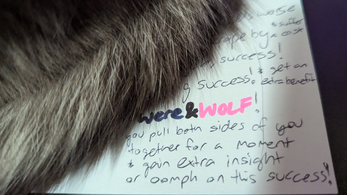 worse
& suffer
by a cost
success!
& get an
g success! extra benefit
were&WOLF!
you pull both sides of you
together for a moment
& gain extra insight
or oomph on this success!